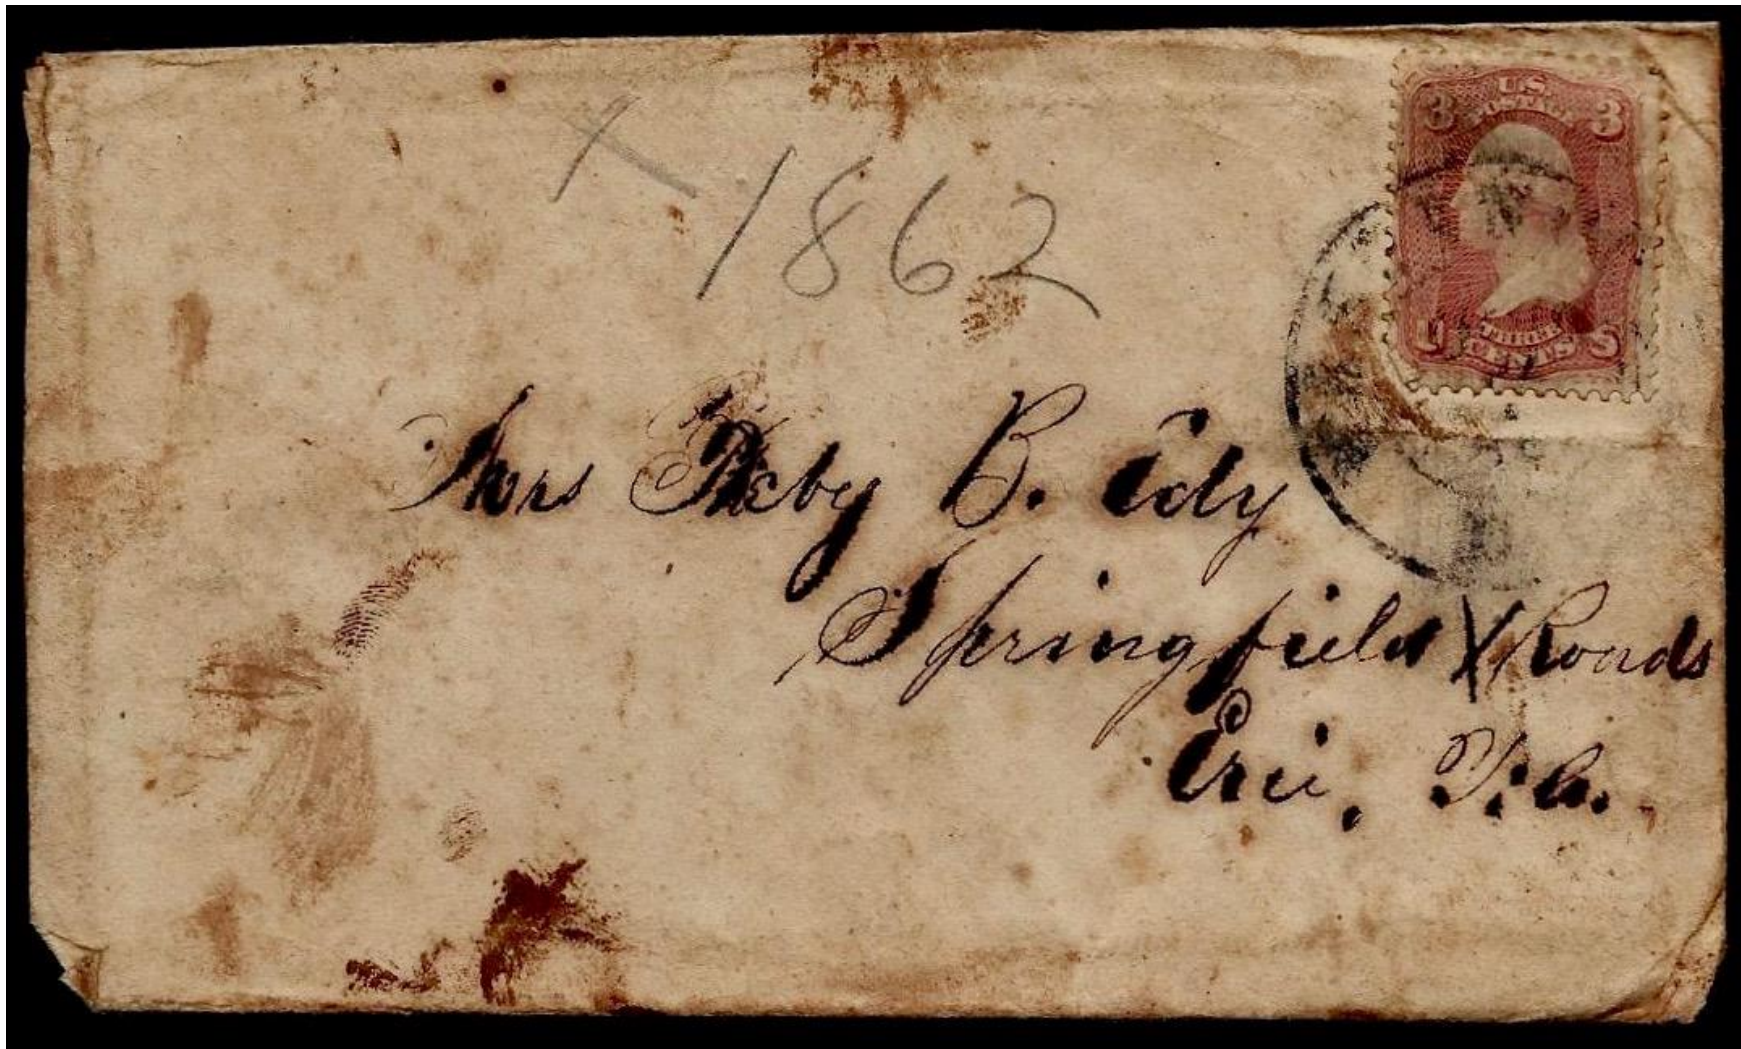 X 1862
3 US 3
POSTAGE
U THREE S
CENTS
Mrs Pheby B. Edy
Springfield X Roads
Erie, Pa.